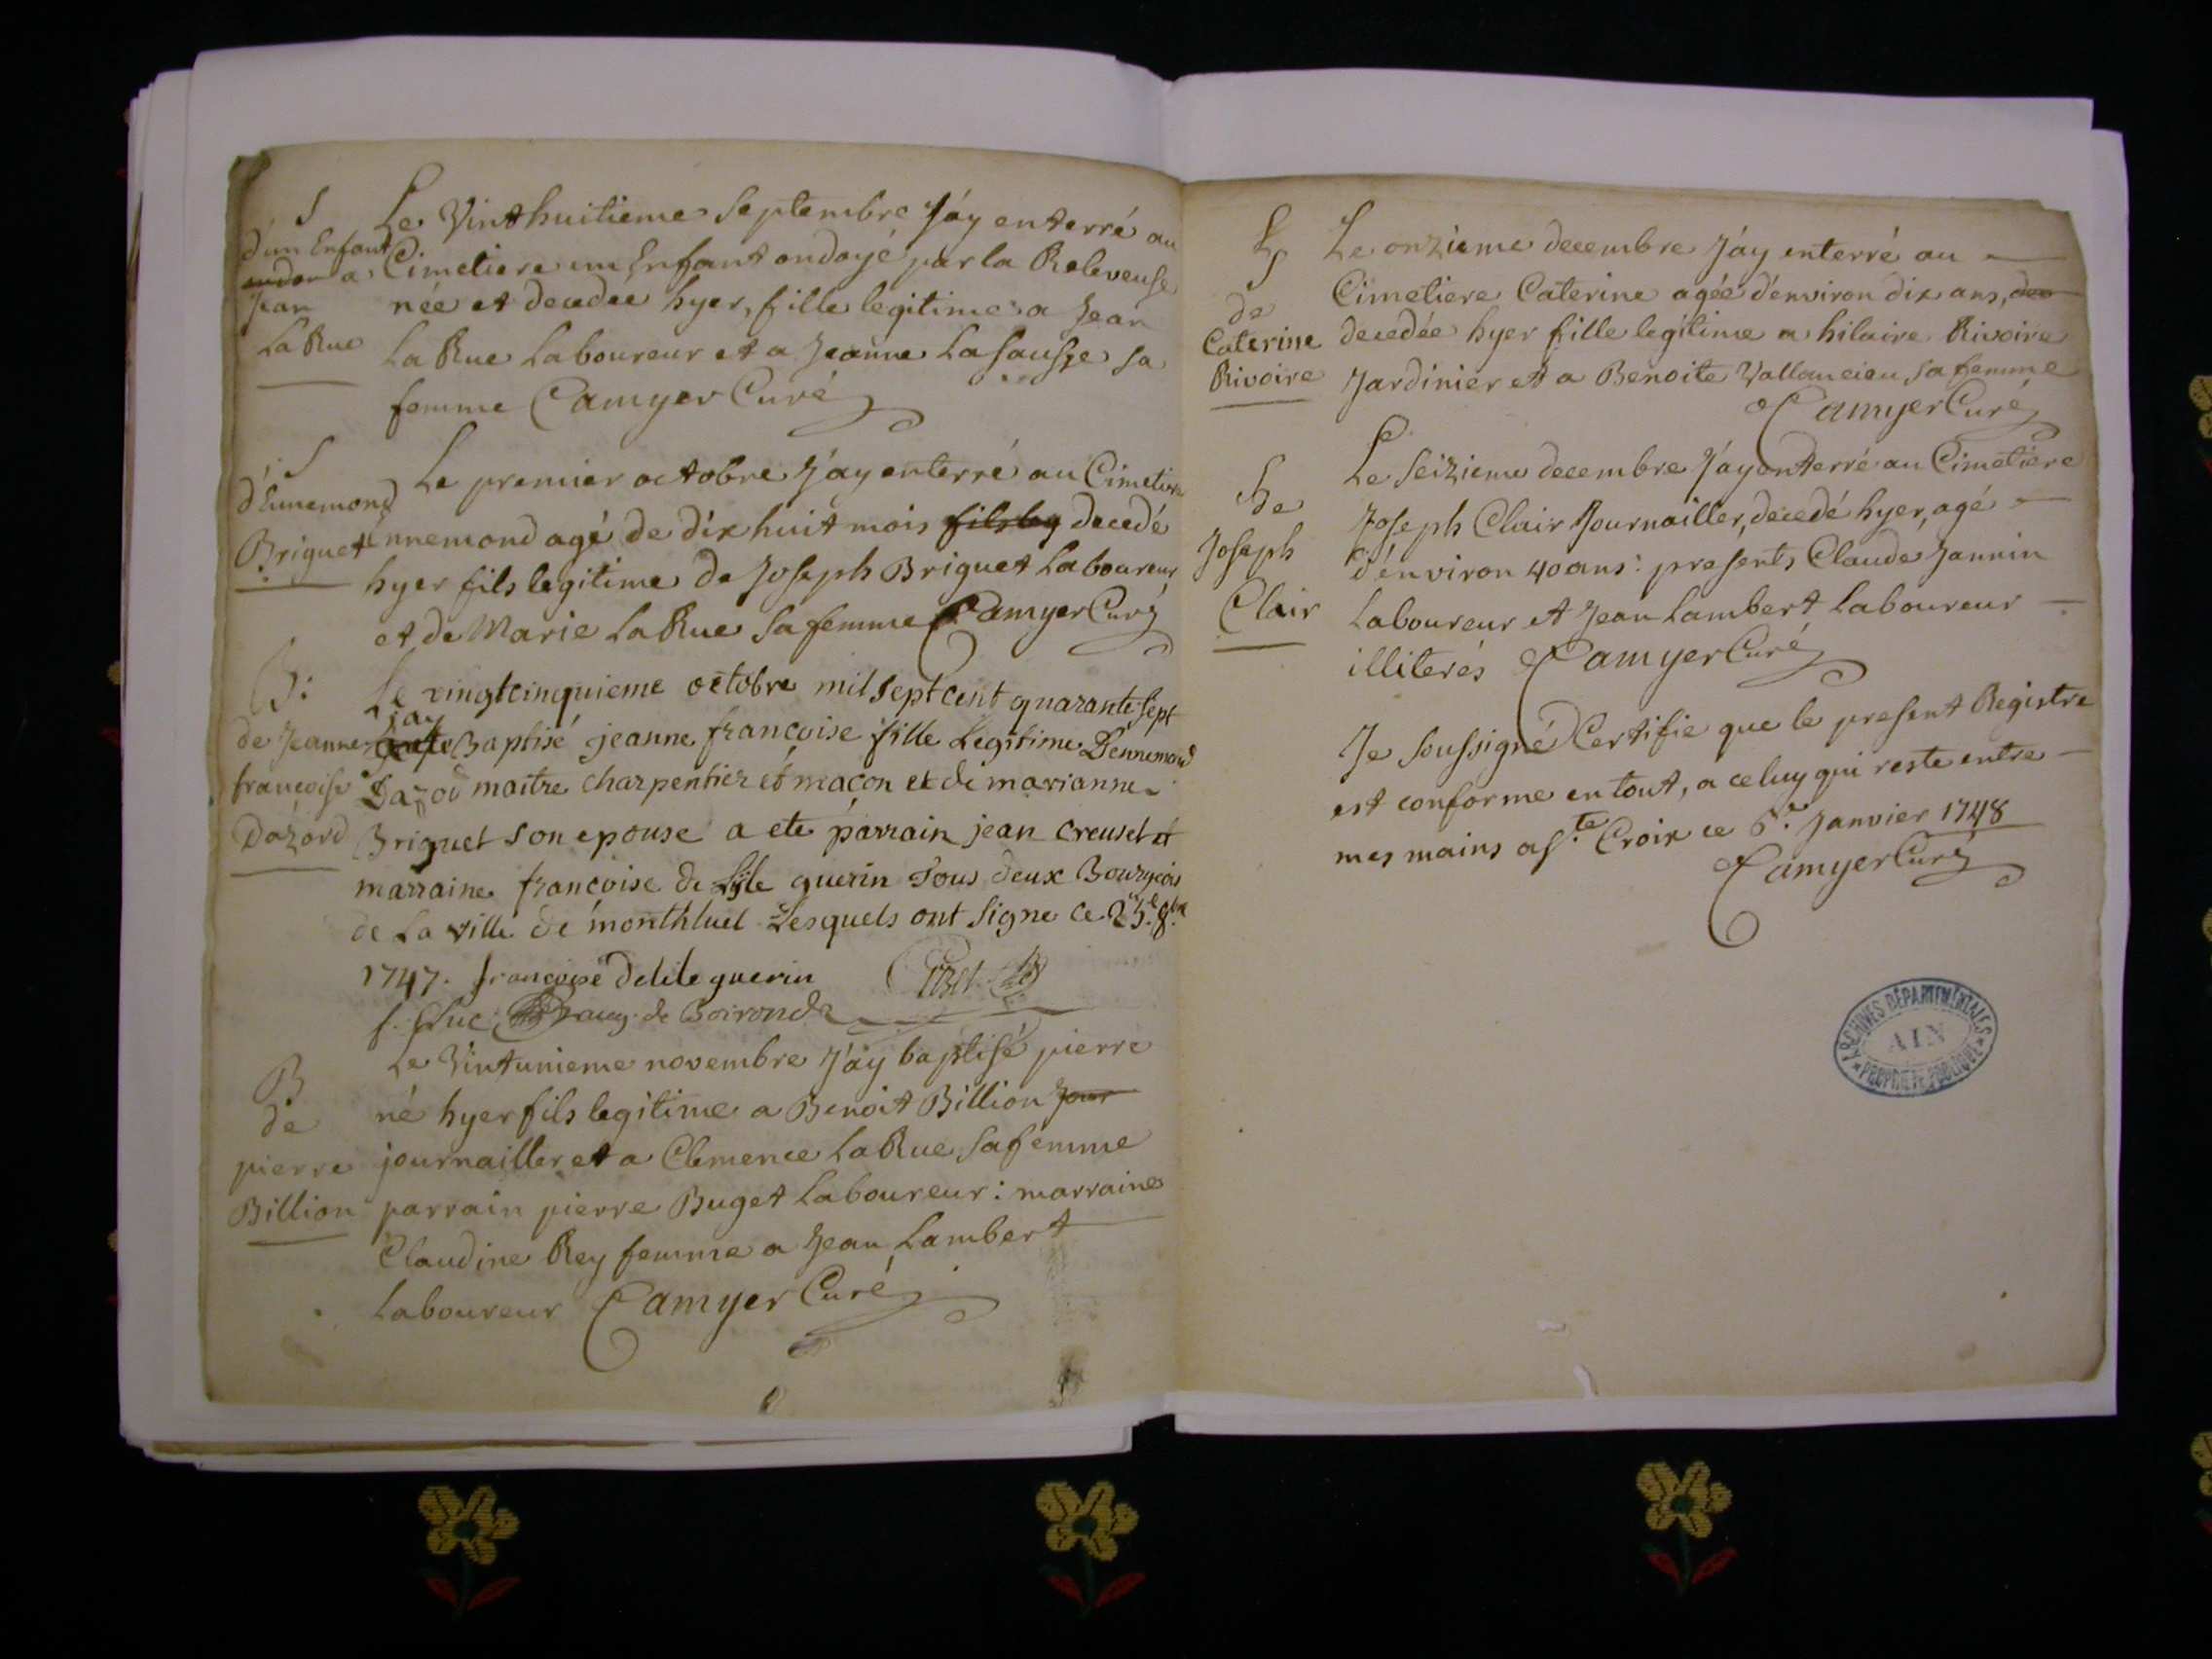 S
d'un Enfant
a
Jean
LaRue
Le Vinthuitieme Septembre J'ay enterré au
Cimetiere un Enfant ondoyé par la Releveuse
née et decedée hyer, fille legitime a Jean
LaRue Laboureur et a Jeanne Lasausse sa
femme Camyer Curé
S
d'Ennemond
Briguet
Le premier octobre J'ay enterré au Cimetiere
Ennemond agé de dix huit mois fils leg decedé
hyer fils legitime de Joseph Briguet Laboureur
et de Marie LaRue Sa femme Camyer Curé
B:
de Jeanne
francoise
Dazord
Le vingtcinquieme octobre mil sept cent quarante sept
jay Baptisé jeanne françoise fille Legitime Dennemond
Dazod maitre charpentier et maçon et de marianne
Briguet son epouse a ete parrain jean Creuset et
marraine françoise de Lisle guerin Tous deux Bourgeois
de La ville de monthluel Lesquels ont signe ce 25.e 8.bre
1747. françoise Delile guerin
f. Luc de Boironde
B
de
pierre
Billion
Le Vintunieme novembre J'ay baptisé pierre
né hyer fils legitime a Benoit Billion Jour
journaillier et a Clemence LaRue Sa femme
parrain pierre Buget Laboureur: marraine
Claudine Rey femme a Jean Lambert
Laboureur Camyer Curé
S
de
Caterine
Rivoire
Le onzieme decembre J'ay enterré au
Cimetiere Caterine agée d'environ dix ans, dec
decedée hyer fille legitime a hilaire Rivoire
Jardinier et a Benoite Vallancien Sa femme
Camyer Curé
S
de
Joseph
Clair
Le Seizieme decembre J'ay enterré au Cimetiere
Joseph Clair Journailler, decedé hyer, agé
d'environ 40 ans: presents Claude Jannin
Laboureur et Jean Lambert Laboureur
illiterés Camyer Curé
Je soussigné Certifie que le present Registre
est conforme en tout, a celuy qui reste entre
mes mains a S.te Croix ce 6.e Janvier 1748
Camyer Curé
ARCHIVES DÉPARTEMENTALES
AIN
PROPRIETE PUBLIQUE